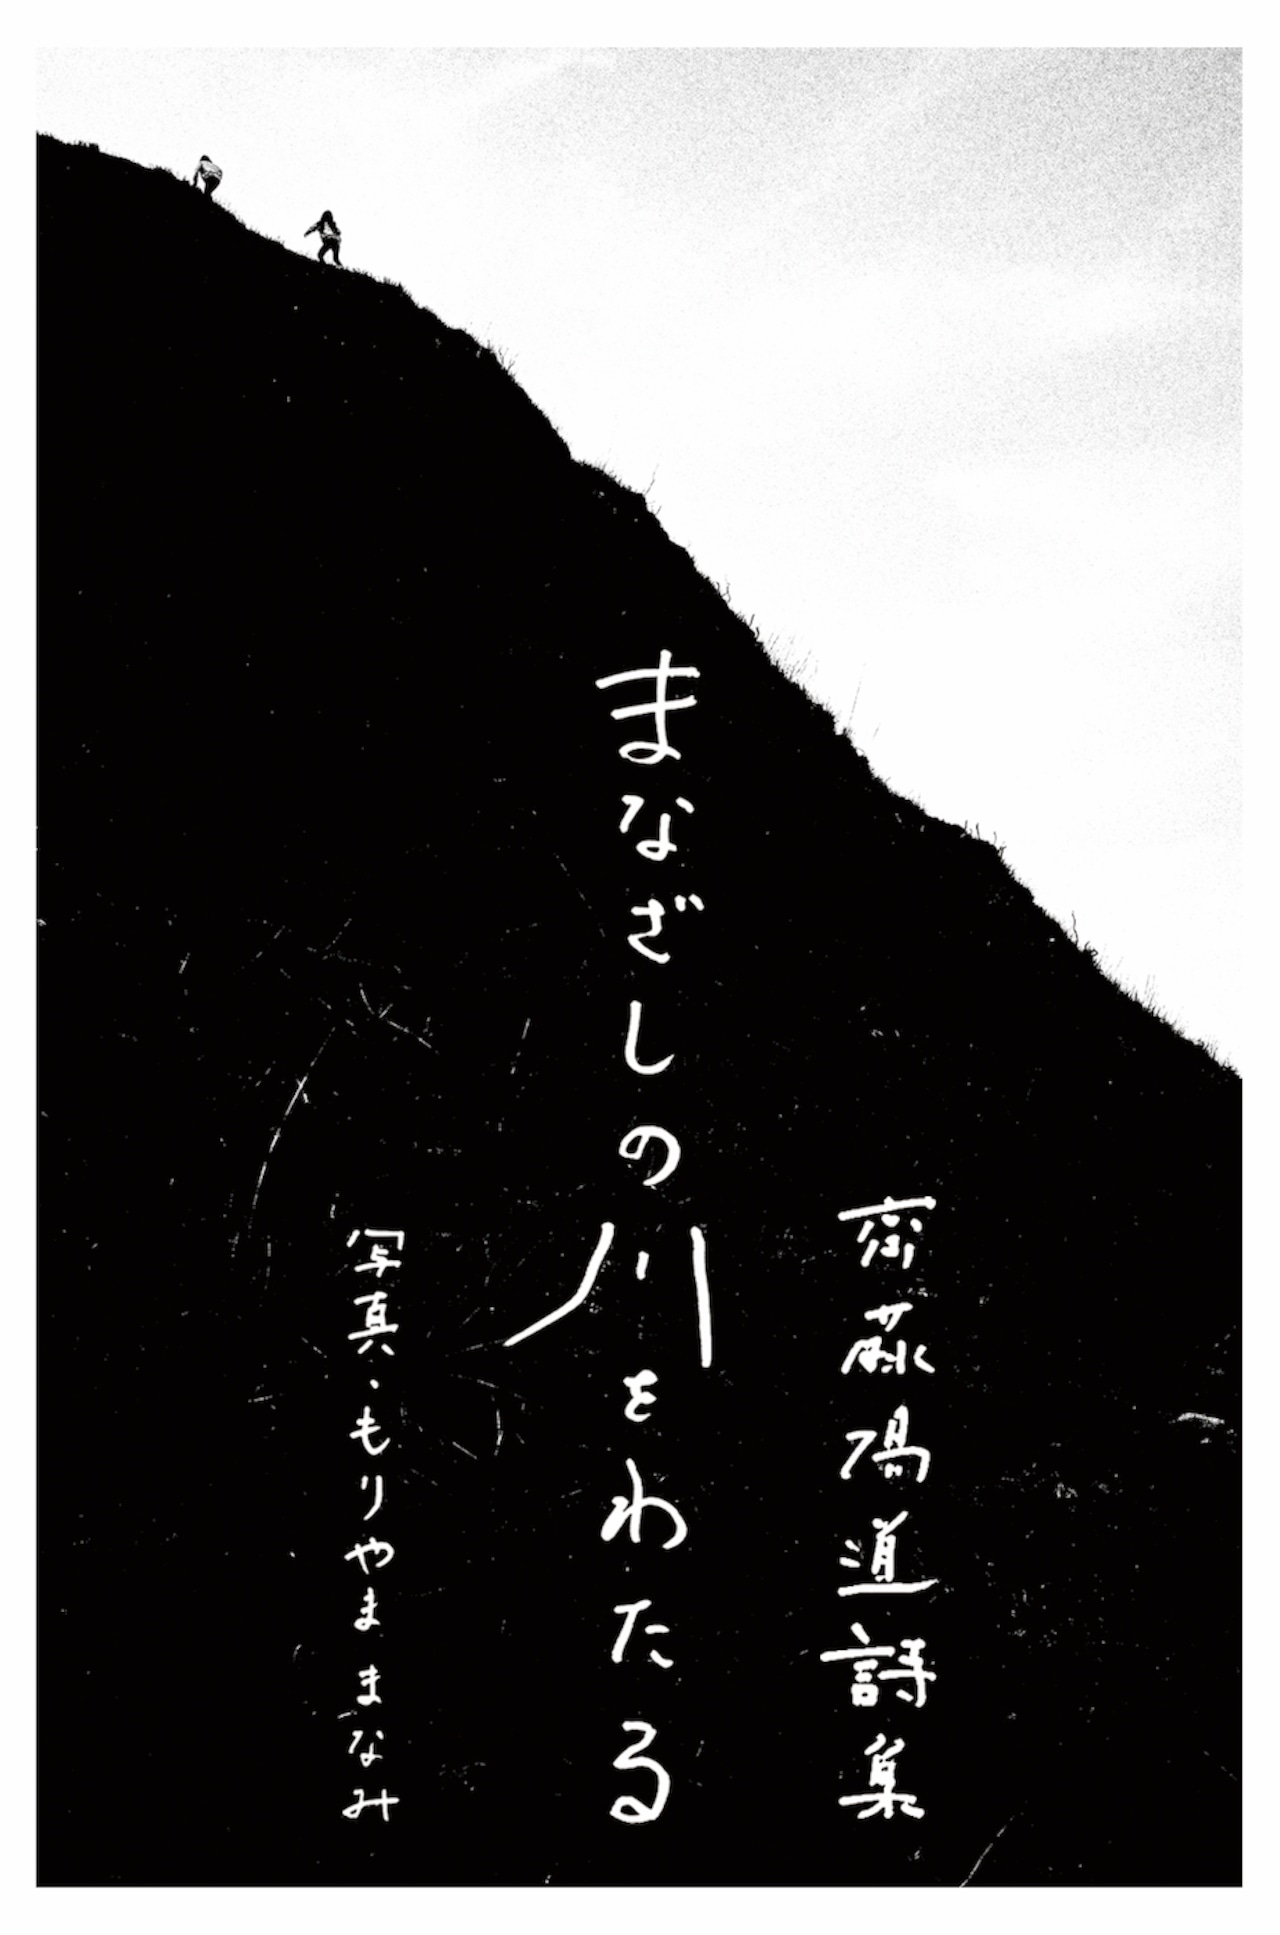 齋藤陽道詩集
まなざしの川をわたる
写真・もりやま まなみ